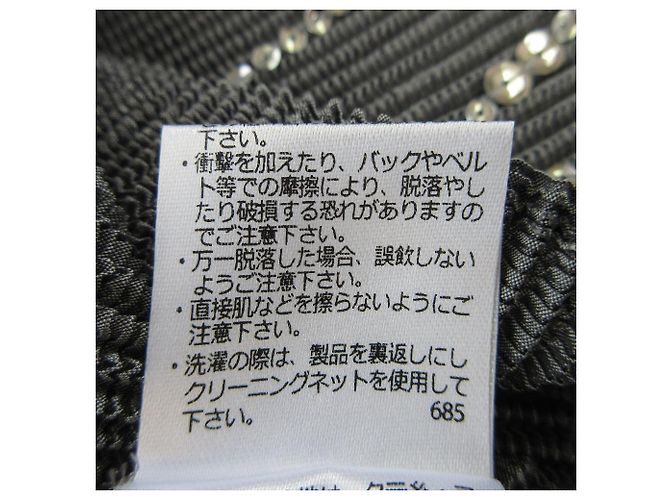 下さい。
・衝撃を加えたり、バックやベル
ト等での摩擦により、脱落やし
たり破損する恐れがありますの
でご注意下さい。
・万一脱落した場合、誤飲しない
ようご注意下さい。
・直接肌などを擦らないようにご
注意下さい。
・洗濯の際は、製品を裏返しにし
クリーニングネットを使用して
下さい。
685